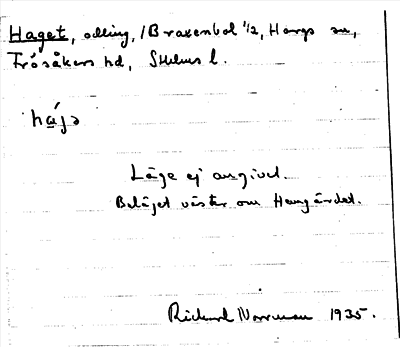 Haget, odling, /Braxenbol 1/2, Hargs sn,
Frösåkers hd, Sthlms l.
hág̣ə
Läge ej angivet.
Beläget väster om Hemgärdet.
Rickard Norrman 1935.